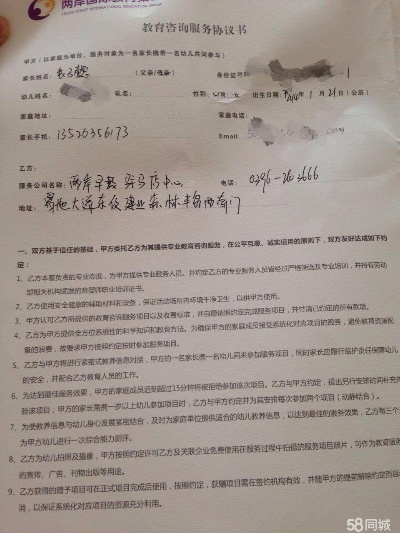 两岸国际教育
教育咨询服务协议书
甲方（以家庭为单位，服务对象为一名家长携带一名幼儿共同参与）
家长姓名： （父亲/母亲） 身份证号
幼儿姓名： 乳名： 性别： 女 出生日期： 年 1 月 21 日（公历）
家庭地址： 家庭电话：
家长手机： 13526356173 Email
乙方：
服务公司名称： 两岸早教 驻马店中心 电话： 0396-2626666
地址：
一、双方基于信任的基础，甲方委托乙方为其提供专业教育咨询服务，在公平互惠、诚实信用的原则下，双方友好达成如下约
定：
1、乙方本着负责的专业态度，为甲方提供专业服务人员，并约定乙方的专业服务人员皆经过严格筛选及专业培训，并持有劳动
部相关机构颁发的育婴师职业培训证书。
2、乙方使用安全健康的辅助材料和设备，保证活动场所内环境干净卫生，以供甲方使用。
3、甲方认可乙方所提供的教育咨询服务项目以及收费标准，并自愿依照约定完成服务项目，并付清已约定的所有款项。
4、乙方为甲方提供全方位系统性的科学知识和教育方法。为确保甲方的家庭成员接受系统化对应项目的服务，避免教育资源配
备的浪费，故要求甲方按照约定按时参加服务项目。
5、乙方与甲方将进行紧密式教养信息对接，甲方的一名家长携一名幼儿同来参加服务项目，同时家长应履行监护责任保障幼儿
的安全，并配合乙方教育人员的工作。
6、为达到最佳服务效果，甲方的家庭成员迟到超过15分钟将被拒绝参加该次项目。乙方与甲方约定，提出另行安排访问补充体
验该项目，甲方的家长携一岁以上幼儿参加项目时，乙方与甲方约定并为其安排每次参加两个项目（动静结合）。
7、为使教养信息与幼儿身心发展紧密结合，及时为家庭单位提供适合的幼儿教养信息，以达到最佳的服务效果，乙方每三个
为甲方幼儿进行一次综合能力测评。
8、乙方为幼儿拍照及摄像，甲方按照约定许可乙方及关联企业免费使用在服务过程中拍摄的服务项目照片，可作为教育服务
的宣传、广告、刊物出版等用途。
9、乙方获得的赠予项目可在正式项目完成后使用，按照约定，获赠项目需在签约机构有效，并随甲方的提前解除约定而自
消，以保证系统化对应项目的资源充分利用。
58同城